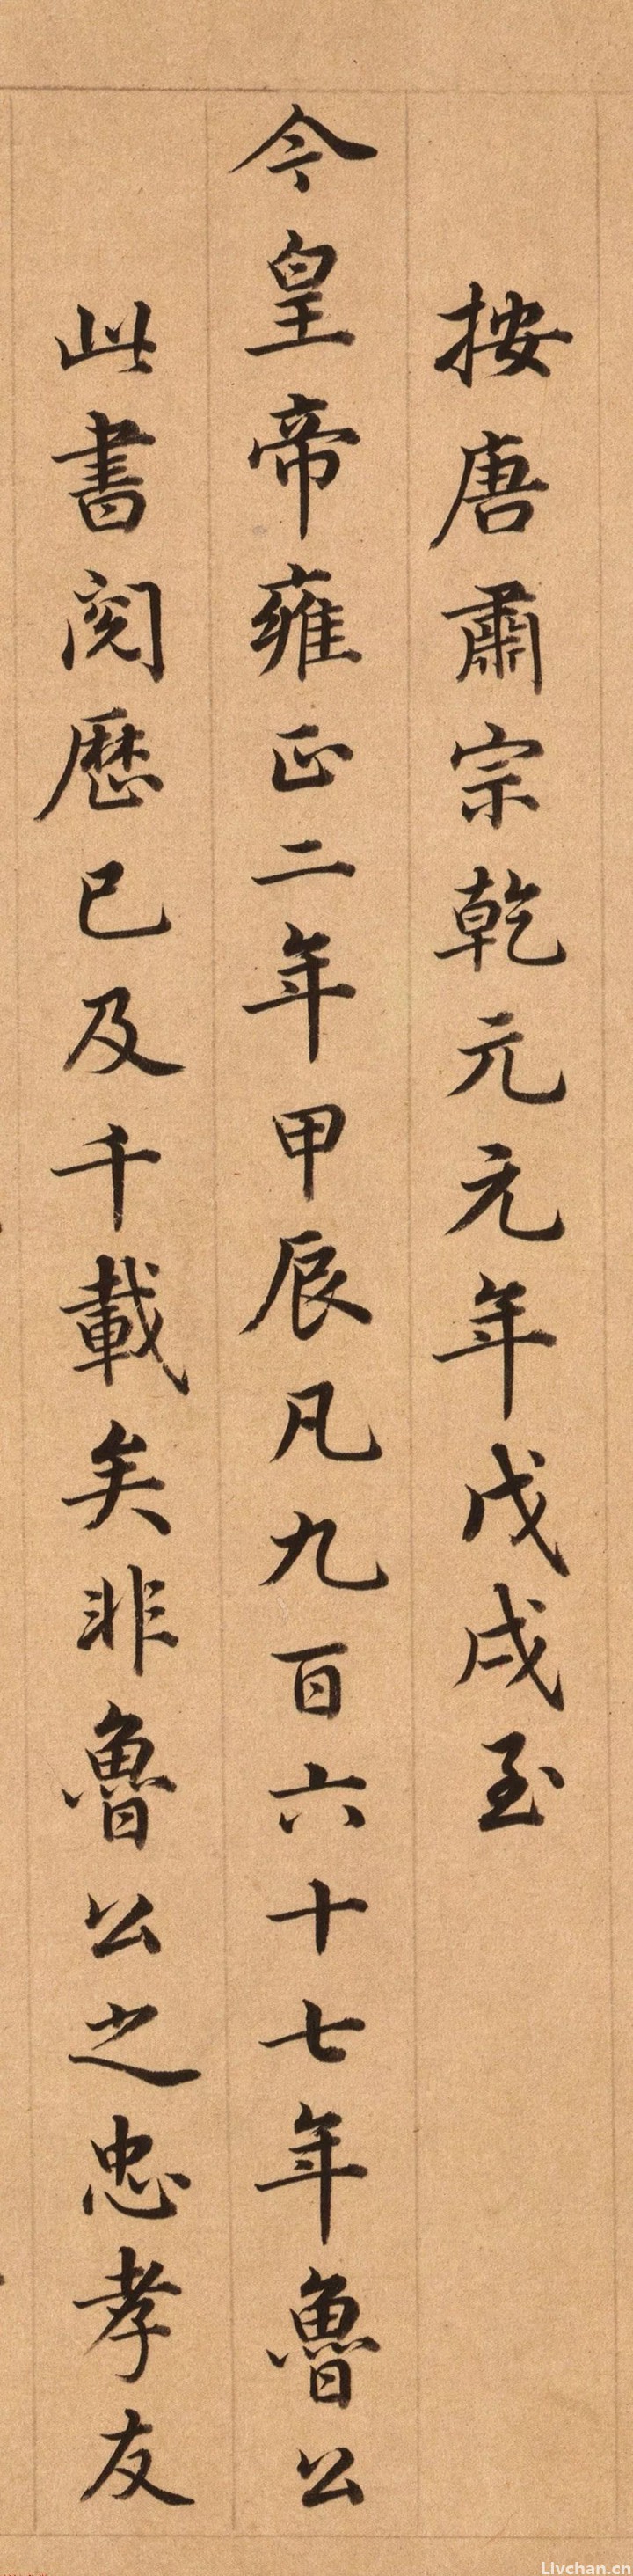 按唐肅宗乾元元年戊戌至
今皇帝雍正二年甲辰凡九百六十七年魯公
此書閱歷已及千載矣非魯公之忠孝友
Livchan.cn